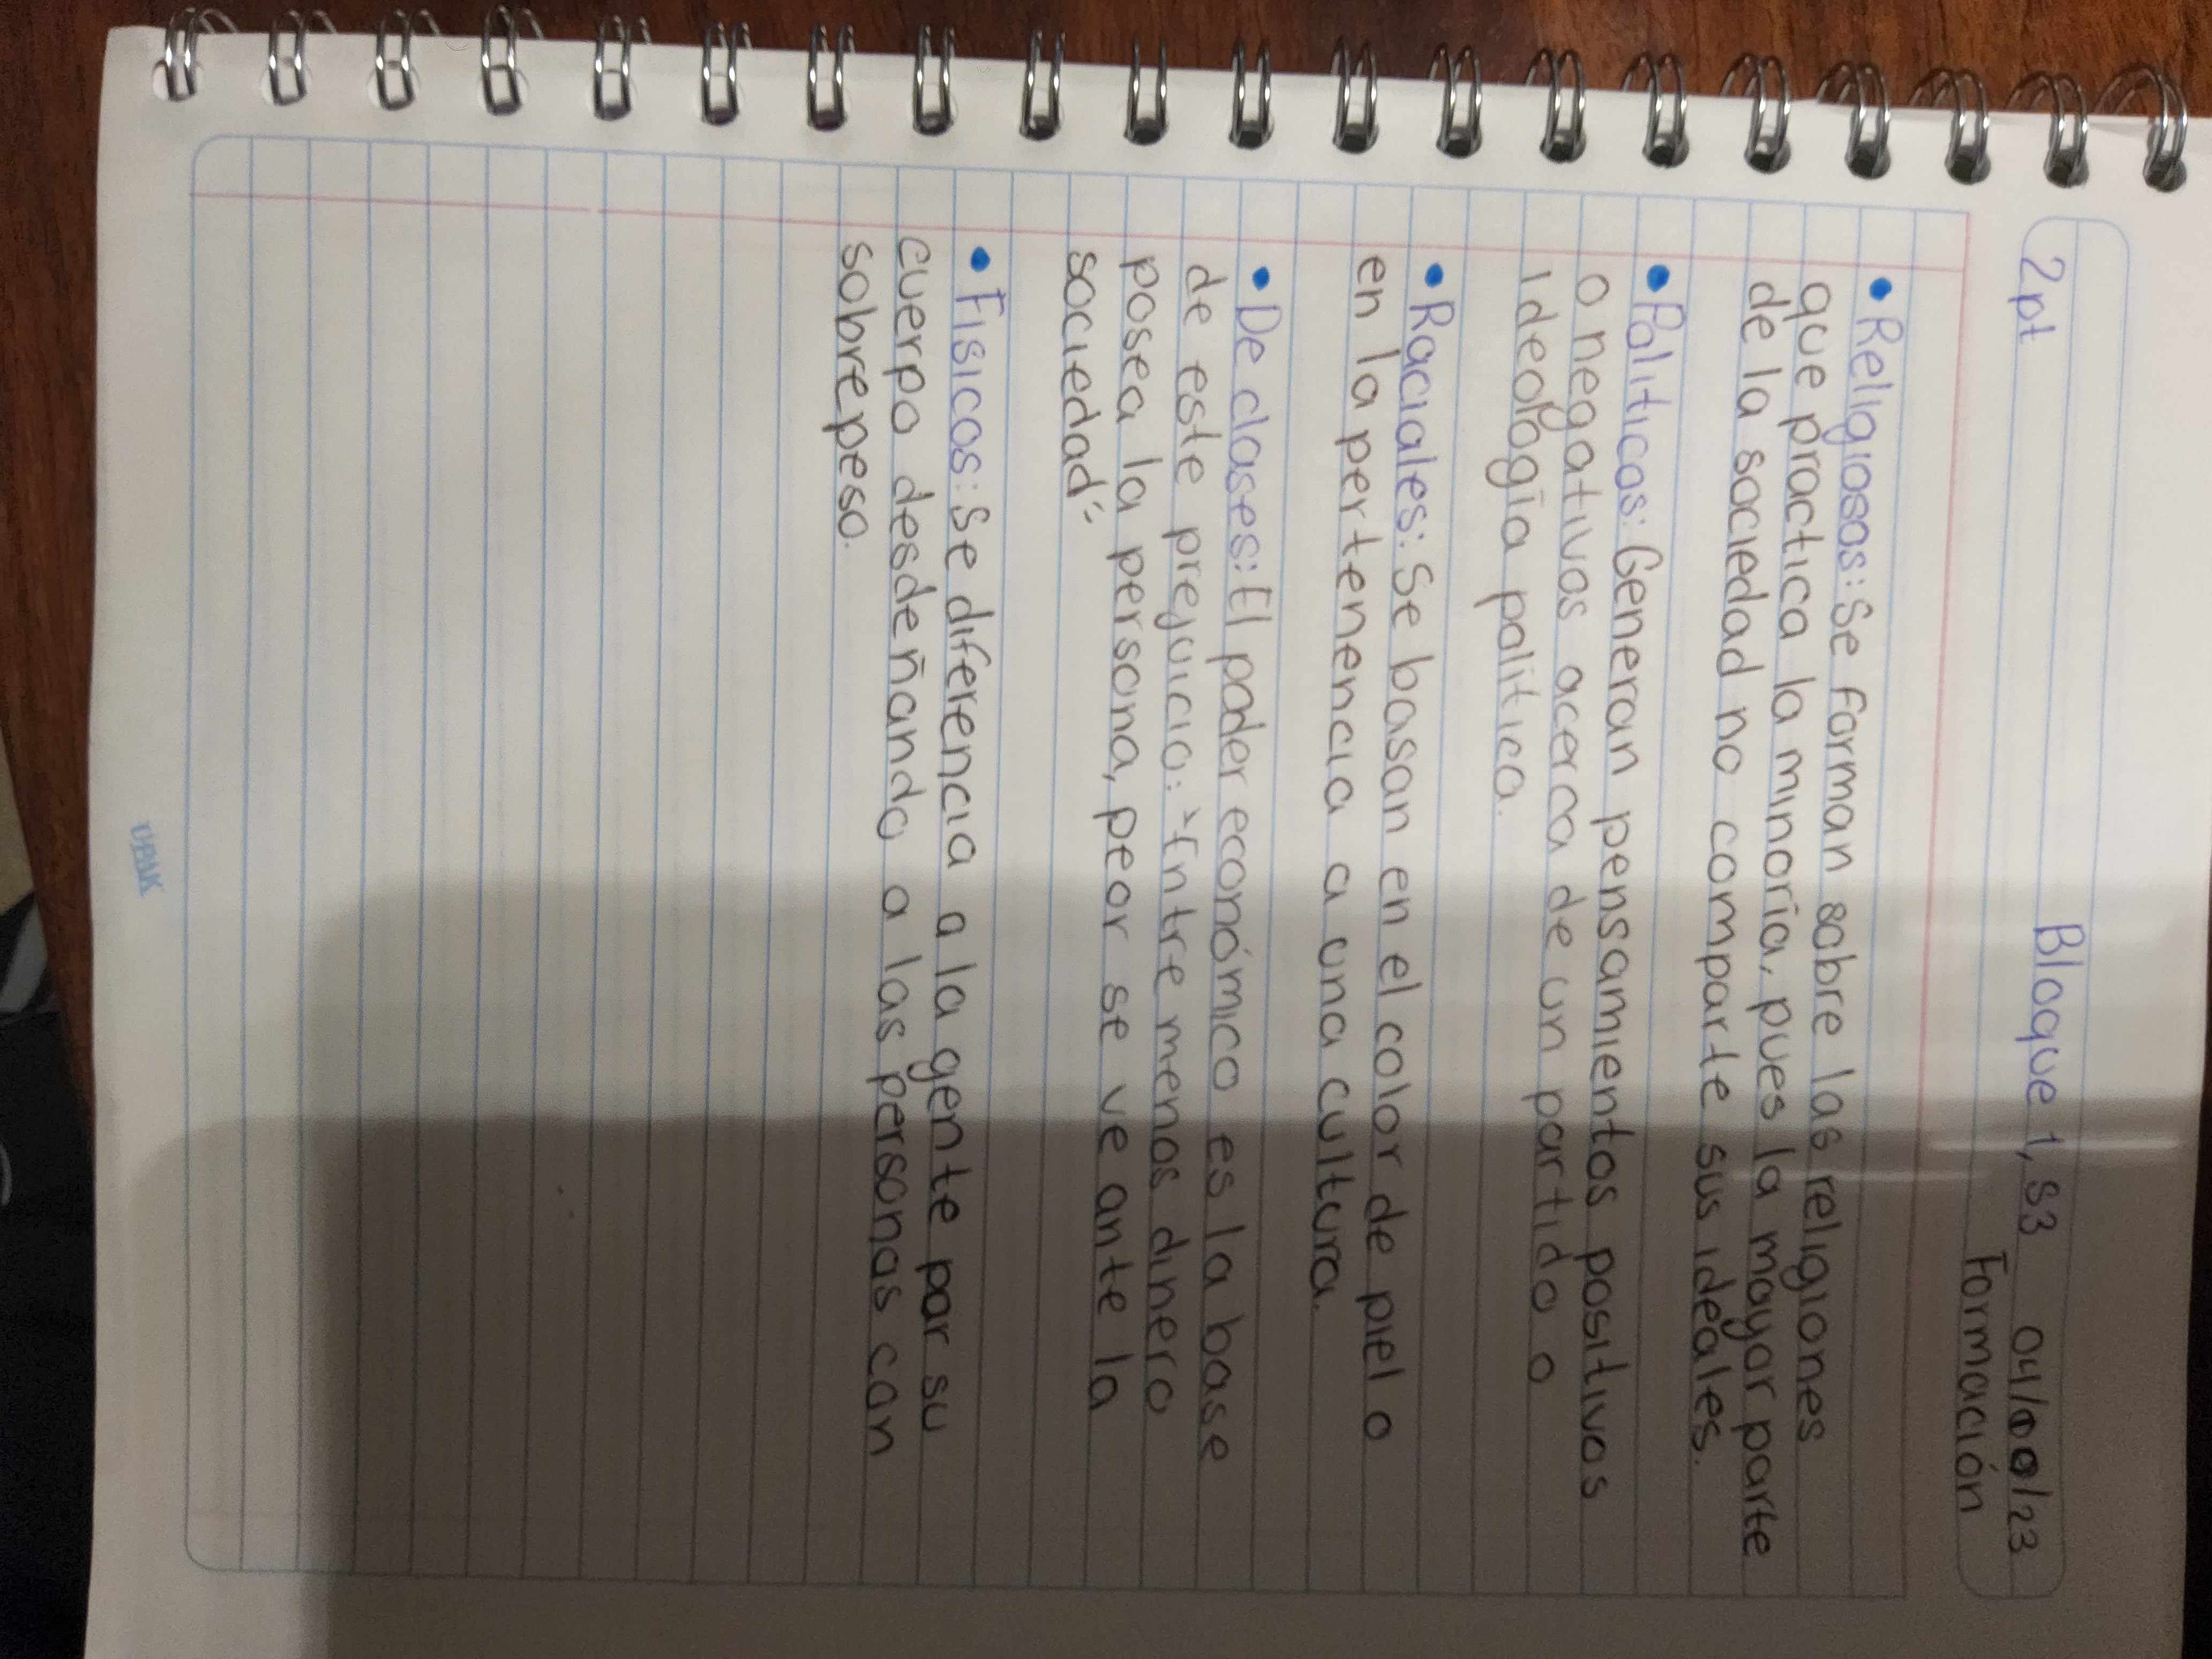 2pt Bloque 1, S3 04/
/23
Formación
• Religiosos: Se forman sobre las religiones
que practica la minoría, pues la mayor parte
de la sociedad no comparte sus ideales.
• Políticos: Generan pensamientos positivos
o negativos acerca de un partido o
ideología política.
• Raciales: Se basan en el color de piel o
en la pertenencia a una cultura.
• De clases: El poder económico es la base
de este prejuicio: "Entre menos dinero
posea la persona, peor se ve ante la
sociedad".
• Físicos: Se diferencia a la gente por su
cuerpo desdeñando a las personas con
sobrepeso.